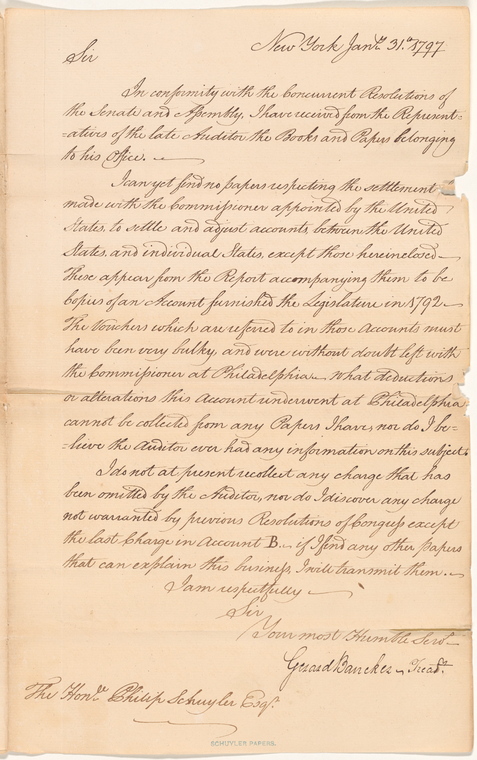 New York Jany. 31st. 1797
Sir
In conformity with the Concurrent Resolutions of
the Senate and Assembly, I have received from the Represent-
-atives of the late Auditor the Books and Papers belonging
to his Office. —
I can yet find no papers respecting the settlement
made with the Commissioner appointed by the United
States, to settle and adjust accounts, between the United
States, and individual States, except those herein enclosed —
These appear from the Report accompanying them to be
Copies of an Account furnished the Legislature in 1792 —
The Vouchers which are referred to in those Accounts must
have been very bulky, and were without doubt left with
the Commissioner at Philadelphia — what deductions
or alterations this Account underwent at Philadelphia
cannot be collected from any Papers I have, nor do I be-
-lieve the Auditor ever had any information on this subject.
I do not at present recollect any charge that has
been omitted by the Auditor, nor do I discover any charge
not warranted by previous Resolutions of Congress except
the last Charge in Account B. — if I find any other papers
that can explain this business, I will transmit them. —
I am respectfully —
Sir
Your most Humble Servt.
Gerard Bancker — Treasr.
The Honle. Philip Schuyler Esqr.
SCHUYLER PAPERS.